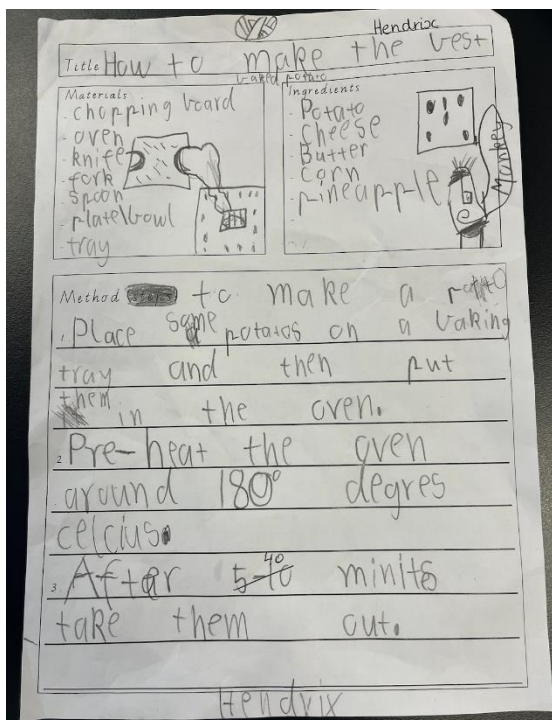 Hendrix
Title How to make the best
baked potato
Materials
- chopping board
- oven
- knife
- fork
- spoon
- plate/bowl
- tray
Ingredients
- Potato
- Cheese
- Butter
- corn
- pineapple
Mankey
Method to make a
1. Place some potatos on a baking
tray and then put
them in the oven.
2 Pre-heat the oven
around 180° degres
celcius.
3. After 40 minits
take them out.
Hendrix